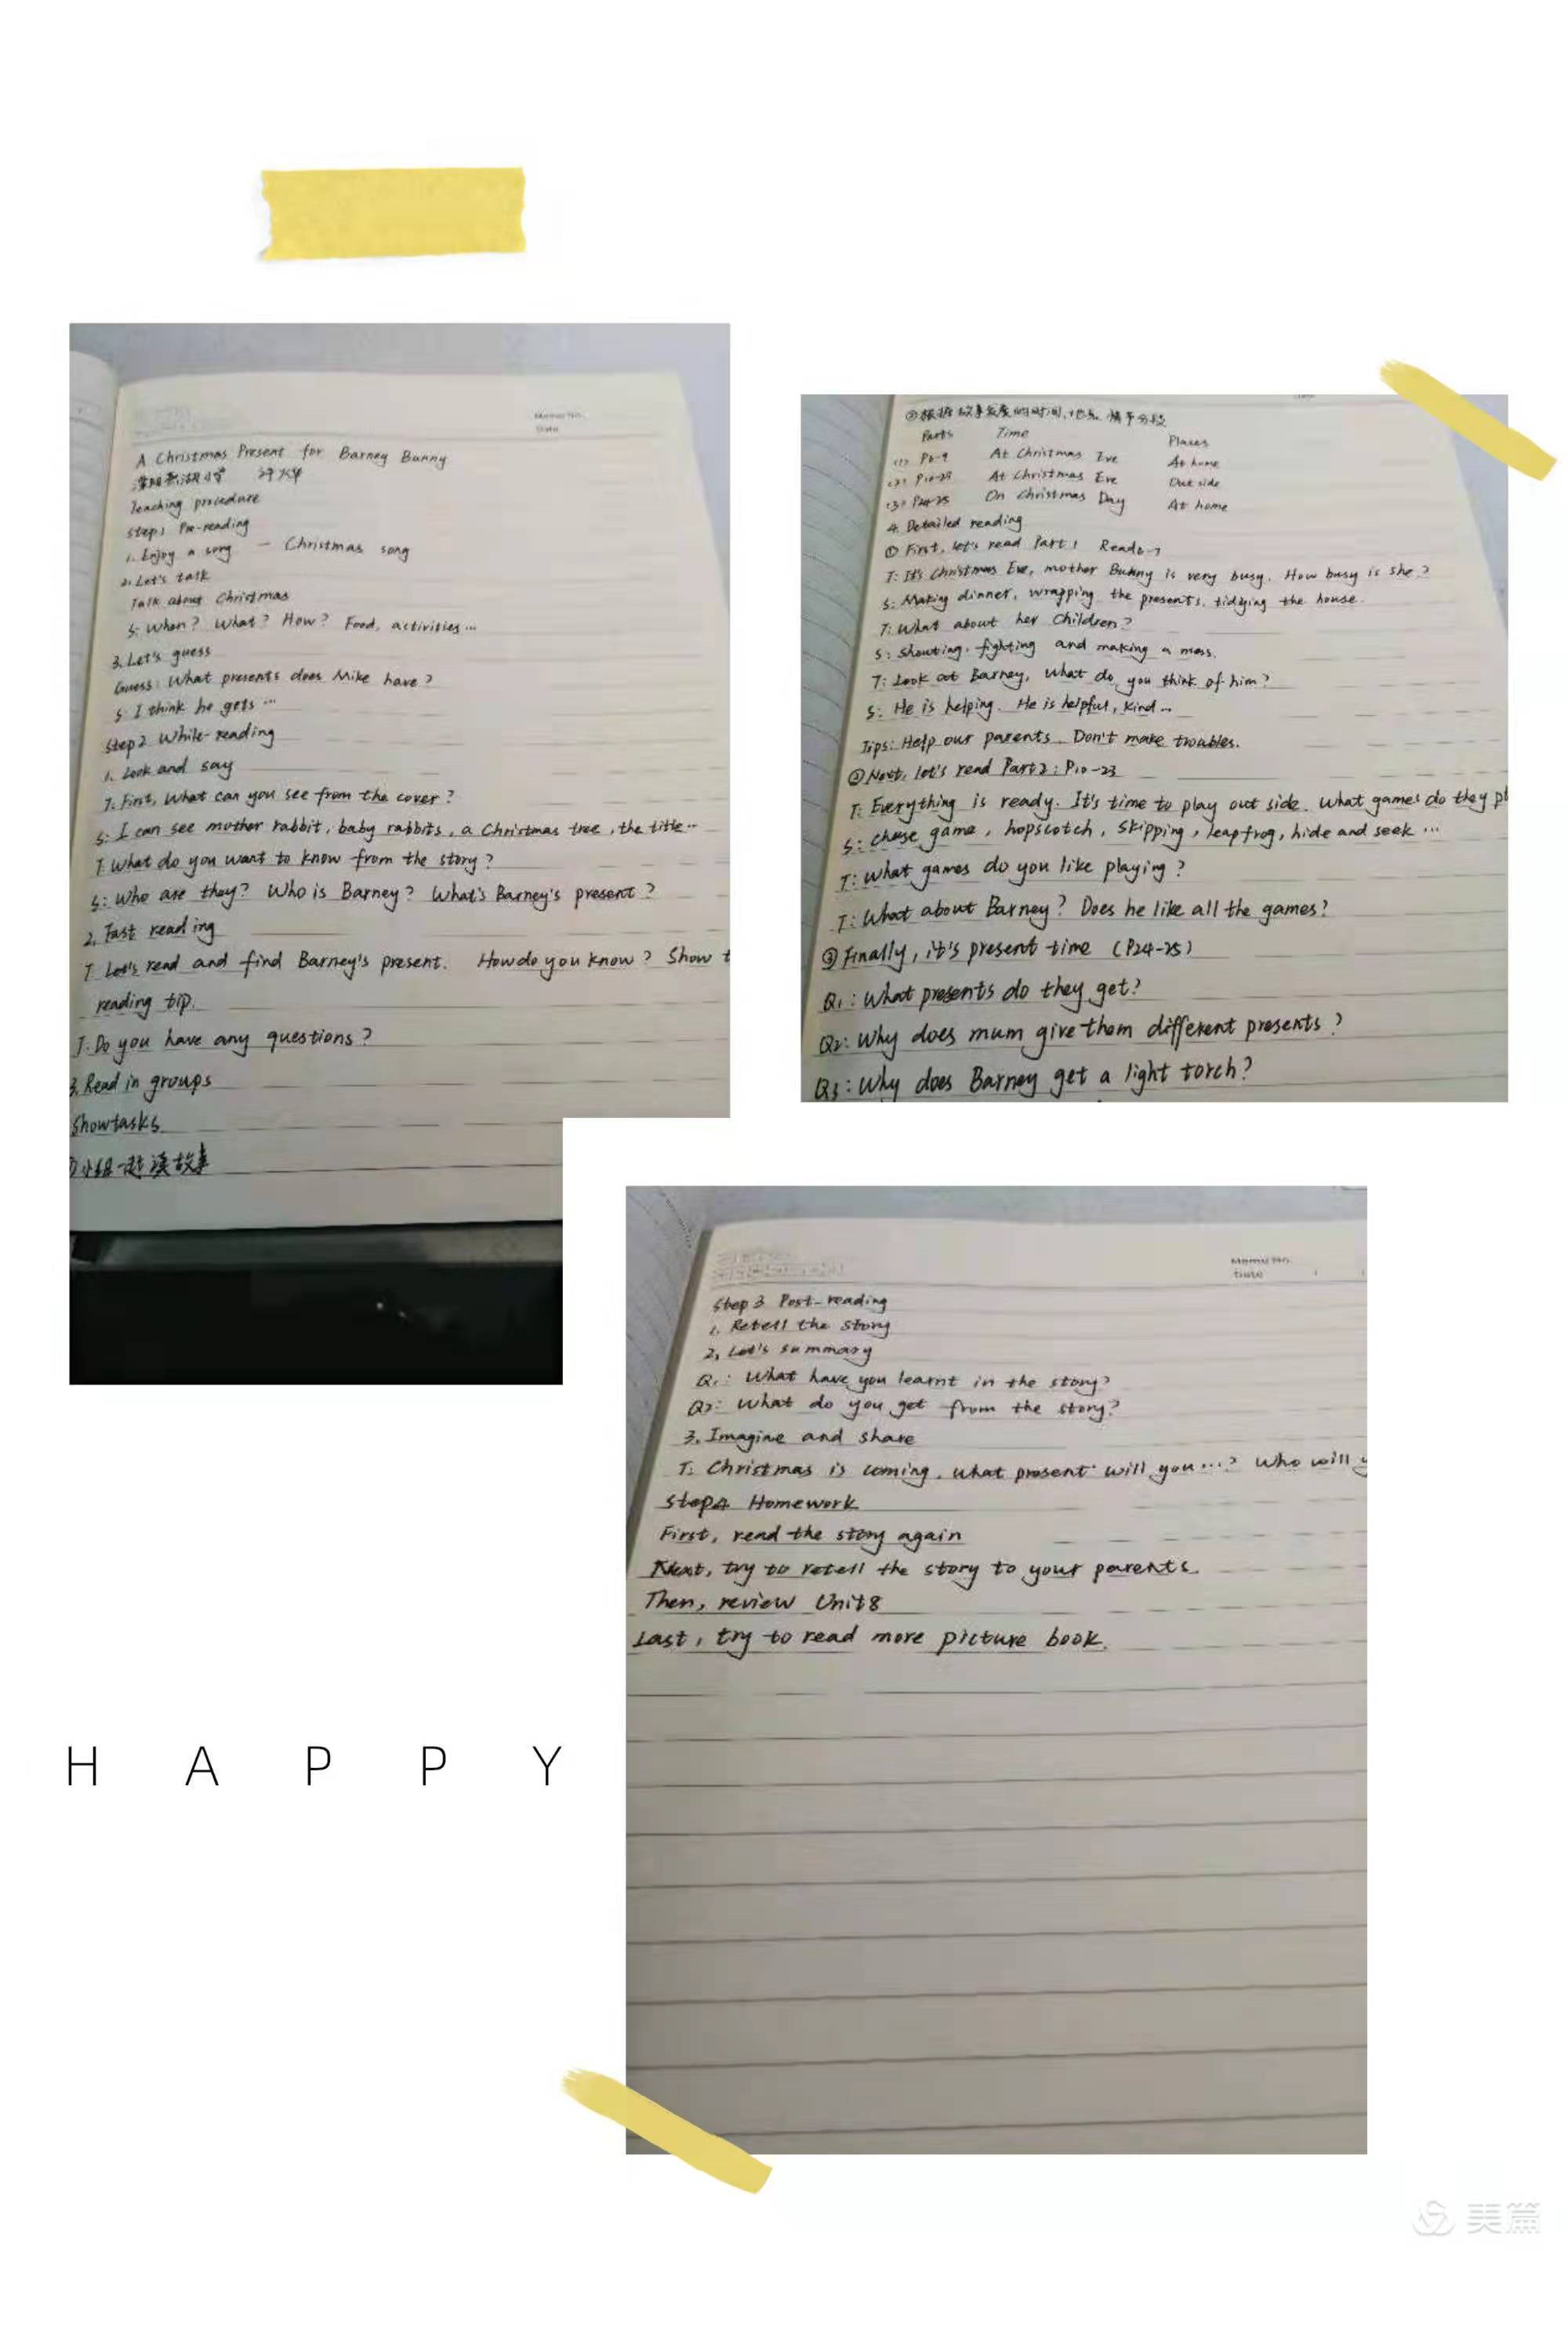 Memo No.
Date
A Christmas Present for Barney Bunny
Teaching procedure
Step1 Pre-reading
1. Enjoy a song - Christmas song
2. Let's talk
Talk about Christmas
S: When? What? How? Food, activities...
3. Let's guess
Guess: What presents does Mike have?
S: I think he gets ...
Step2 While-reading
1. Look and say
T: First, What can you see from the cover?
S: I can see mother rabbit, baby rabbits, a Christmas tree, the title...
T: What do you want to know from the story?
S: Who are they? Who is Barney? What's Barney's present?
2. Fast reading
T: Let's read and find Barney's present. How do you know? Show t
reading tip.
T: Do you have any questions?
3. Read in groups
Show tasks
①小组一起读故事
②根据故事发展的时间、地点、情节分段
Parts Time Places
(1) At Christmas Eve At home
(2) At Christmas Eve Out side
(3) On Christmas Day At home
4. Detailed reading
① First, let's read Part1
T: It's Christmas Eve, mother Bunny is very busy. How busy is she?
S: Making dinner, wrapping the presents, tidying the house.
T: What about her children?
S: Shouting, fighting and making a mess.
T: Look at Barney, what do you think of him?
S: He is helping. He is helpful, kind...
Tips: Help our parents. Don't make troubles.
② Next, let's read Part2: P10-23
T: Everything is ready. It's time to play out side. What games do they pl
S: chase game, hopscotch, skipping, leapfrog, hide and seek ...
T: What games do you like playing?
T: What about Barney? Does he like all the games?
③ Finally, it's present time (P24-25)
Q1: What presents do they get?
Q2: Why does mum give them different presents?
Q3: Why does Barney get a light torch?
Memo No.
Date
Step 3 Post-reading
1. Retell the story
2. Let's summary
Q1: What have you learnt in the story?
Q2: What do you get from the story?
3. Imagine and share
T: Christmas is coming. What present will you...? Who will y
Step4 Homework
First, read the story again
Next, try to retell the story to your parents.
Then, review Unit8
Last, try to read more picture book.
H A P P Y
美篇